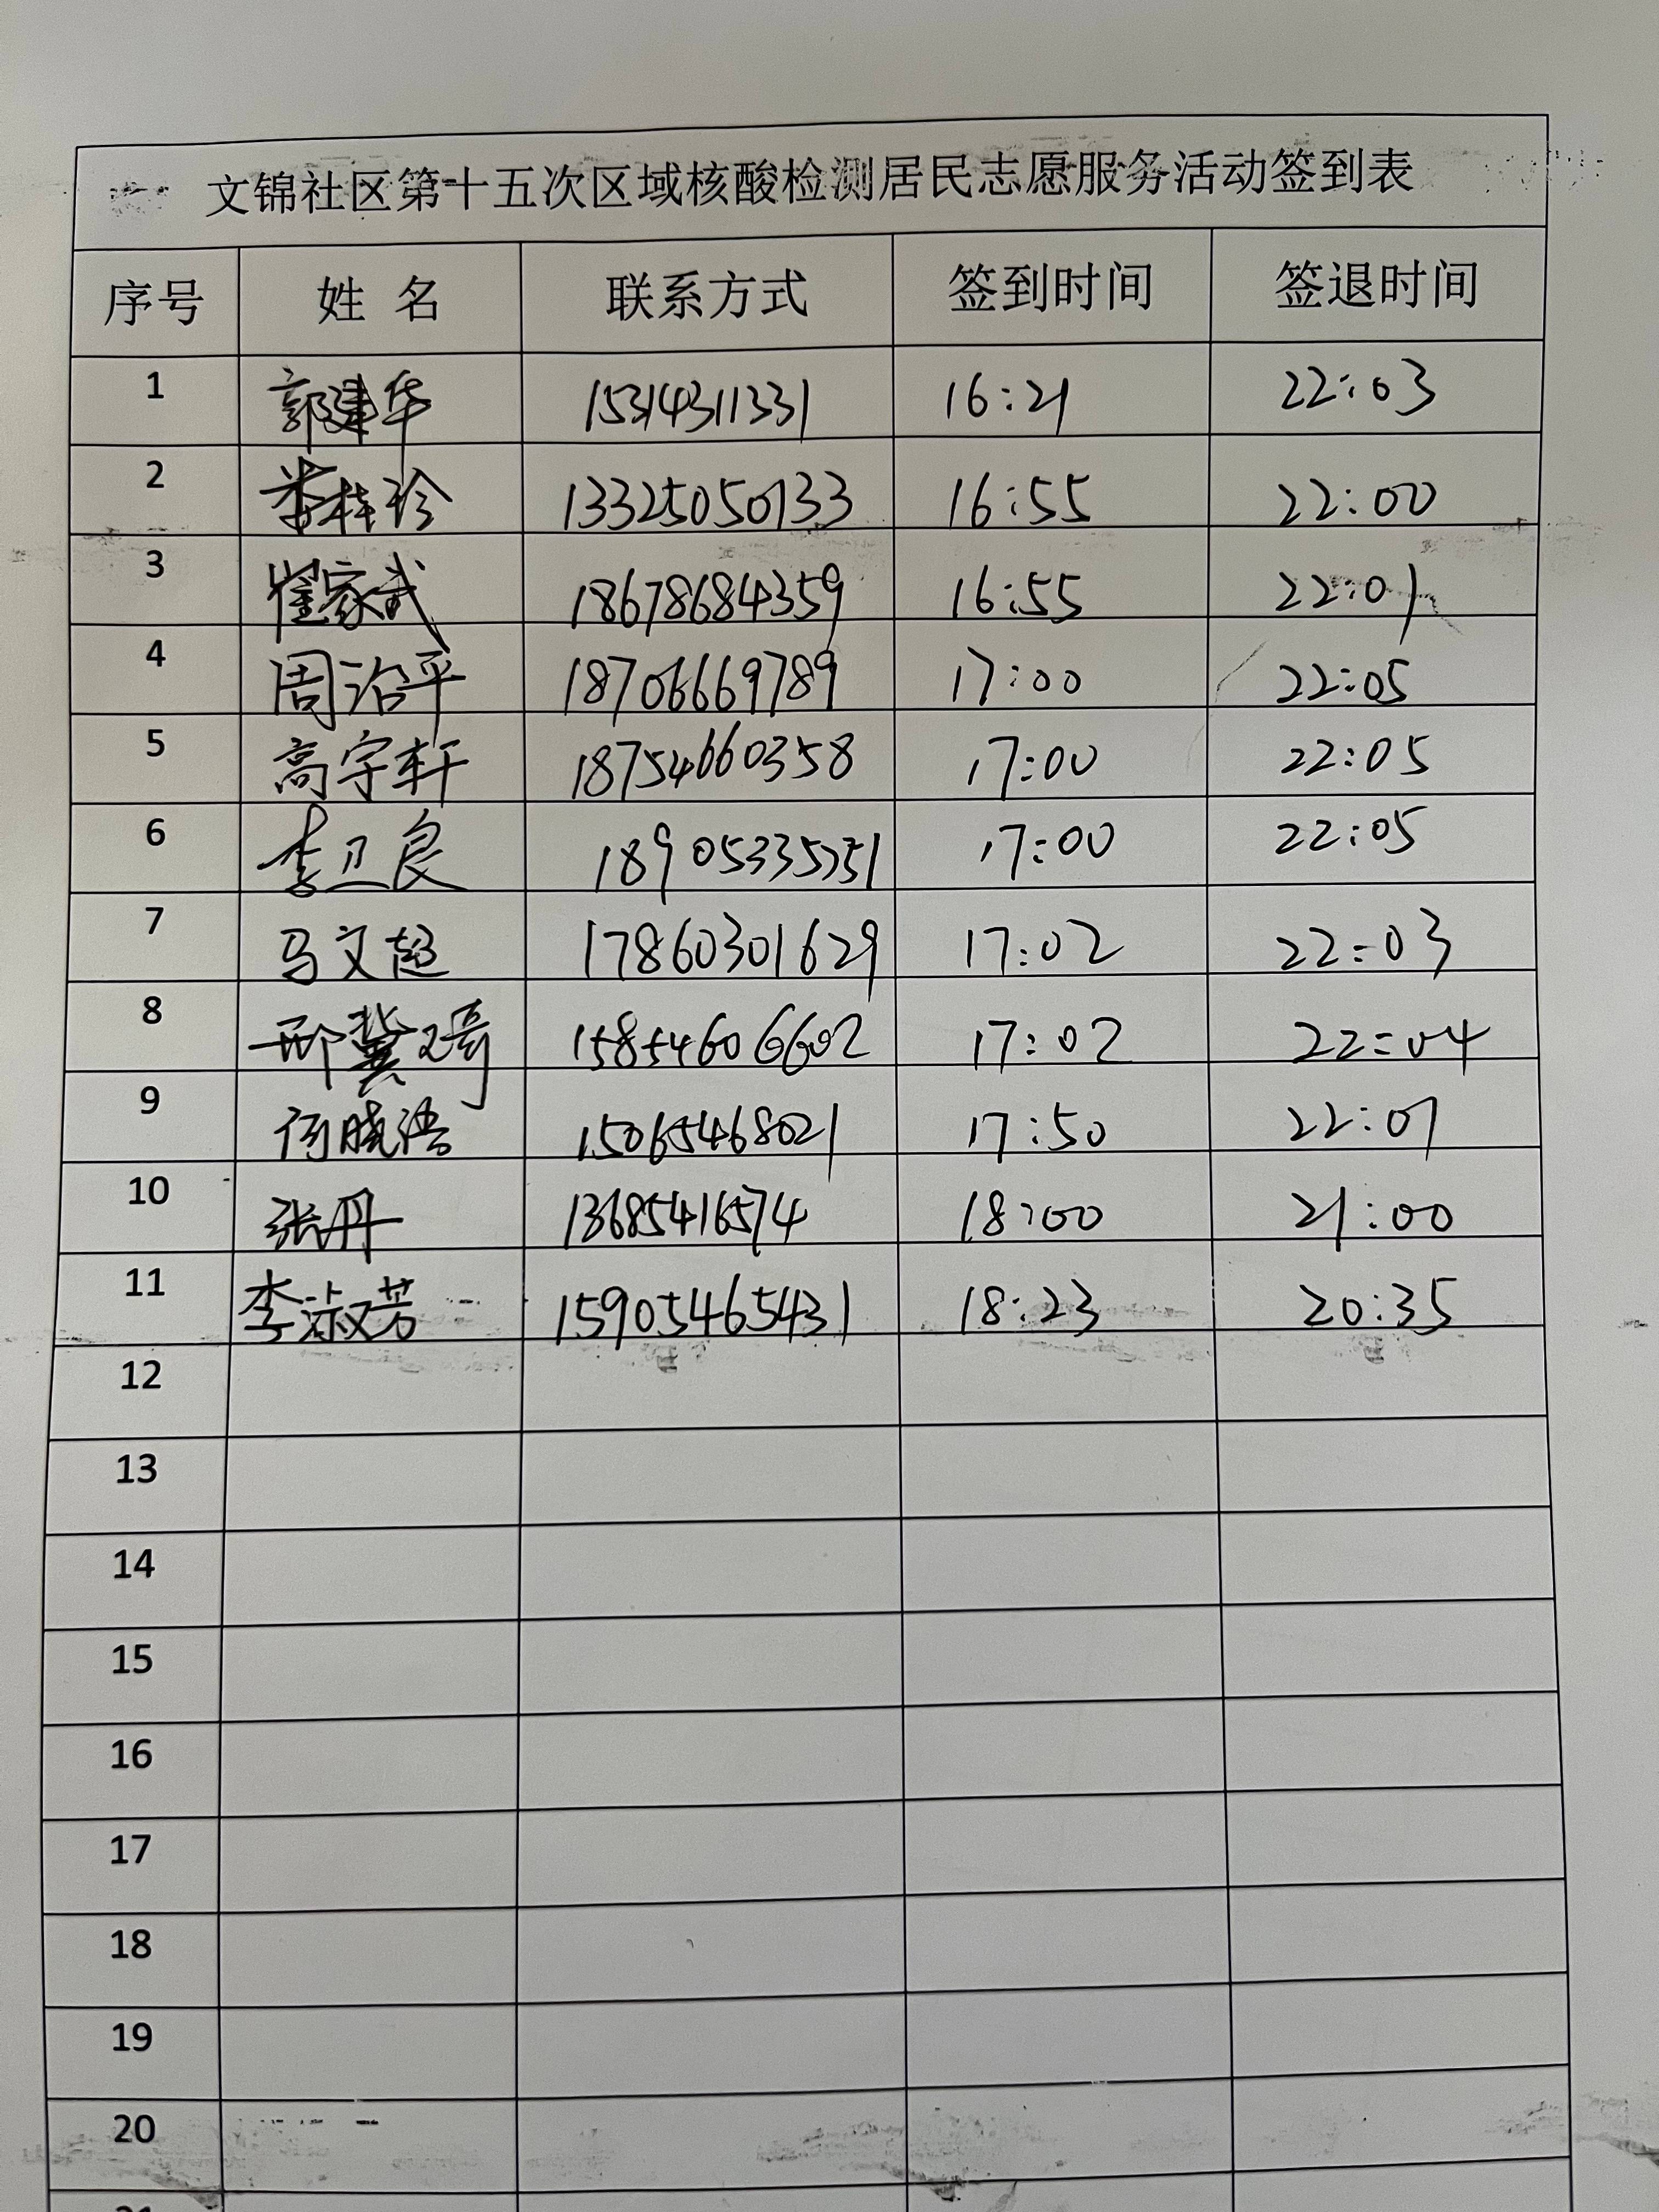 文锦社区第十五次区域核酸检测居民志愿服务活动签到表
序号 姓 名 联系方式 签到时间 签退时间
1 郭建华 15314311331 16:21 22:03
2 李桂珍 13325050133 16:55 22:00
3 崔家武 18678684359 16:55 22:01
4 周治平 18706669789 17:00 22:05
5 高宇轩 18754660358 17:00 22:05
6 李卫良 18905335351 17:00 22:05
7 马文超 17860301629 17:02 22:03
8 邢冀 15854606602 17:02 22:04
9 何晓浩 15065468021 17:50 22:01
10 张丹 13685416574 18:00 21:00
11 李淑芳 15905465431 18:23 20:35
12
13
14
15
16
17
18
19
20